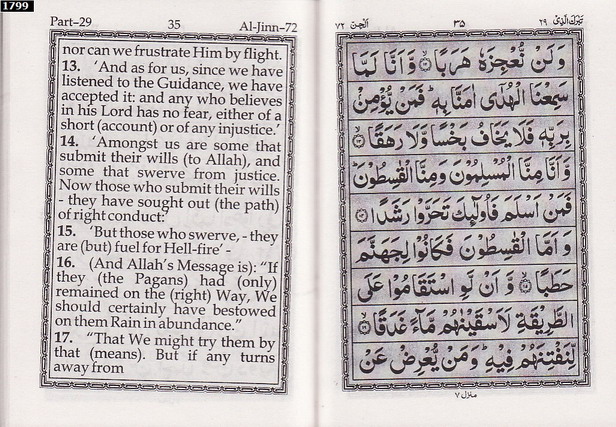 1799
Part-29 35 Al-Jinn-72
nor can we frustrate Him by flight.
13. 'And as for us, since we have
listened to the Guidance, we have
accepted it: and any who believes
in his Lord has no fear, either of a
short (account) or of any injustice.'
14. 'Amongst us are some that
submit their wills (to Allah), and
some that swerve from justice.
Now those who submit their wills
- they have sought out (the path)
of right conduct:'
15. 'But those who swerve, - they
are (but) fuel for Hell-fire' -
16. (And Allah's Message is): "If
they (the Pagans) had (only)
remained on the (right) Way, We
should certainly have bestowed
on them Rain in abundance."
17. "That We might try them by
that (means). But if any turns
away from
تبرك الذي ٢٩ ٣٥ الجن ٧٢
وَلَنْ نُّعْجِزَهٗ هَرَبًا ۝١٢ وَّاَنَّا لَمَّا
سَمِعْنَا الْهُدٰٓى اٰمَنَّا بِهٖ ؕ فَمَنْ يُّؤْمِنْ
بِرَبِّهٖ فَلَا يَخَافُ بَخْسًا وَّلَا رَهَقًا ۝١٣
وَّاَنَّا مِنَّا الْمُسْلِمُوْنَ وَمِنَّا الْقٰسِطُوْنَ ؕ
فَمَنْ اَسْلَمَ فَاُولٰٓئِكَ تَحَرَّوْا رَشَدًا ۝١٤
وَاَمَّا الْقٰسِطُوْنَ فَكَانُوْا لِجَهَنَّمَ
حَطَبًا ۝١٥ وَّاَنْ لَّوِ اسْتَقَامُوْا عَلَى
الطَّرِيْقَةِ لَاَسْقَيْنٰهُمْ مَّآءً غَدَقًا ۝١٦
لِّنَفْتِنَهُمْ فِيْهِ ؕ وَمَنْ يُّعْرِضْ عَنْ
منزل ٧